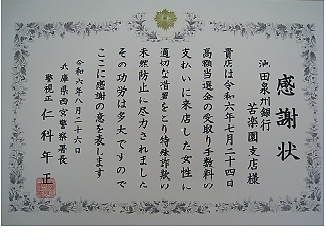 感謝状
池田泉州銀行
苦楽園支店様
貴店は令和六年七月二十四日
高額当選金の受取り手数料の
支払いに来店した女性に
適切な措置をとり特殊詐欺の
未然防止に尽力されました
その功労は多大ですので
ここに感謝の意を表します
令和六年八月二十六日
兵庫県西宮警察署長
警視正 仁科年正